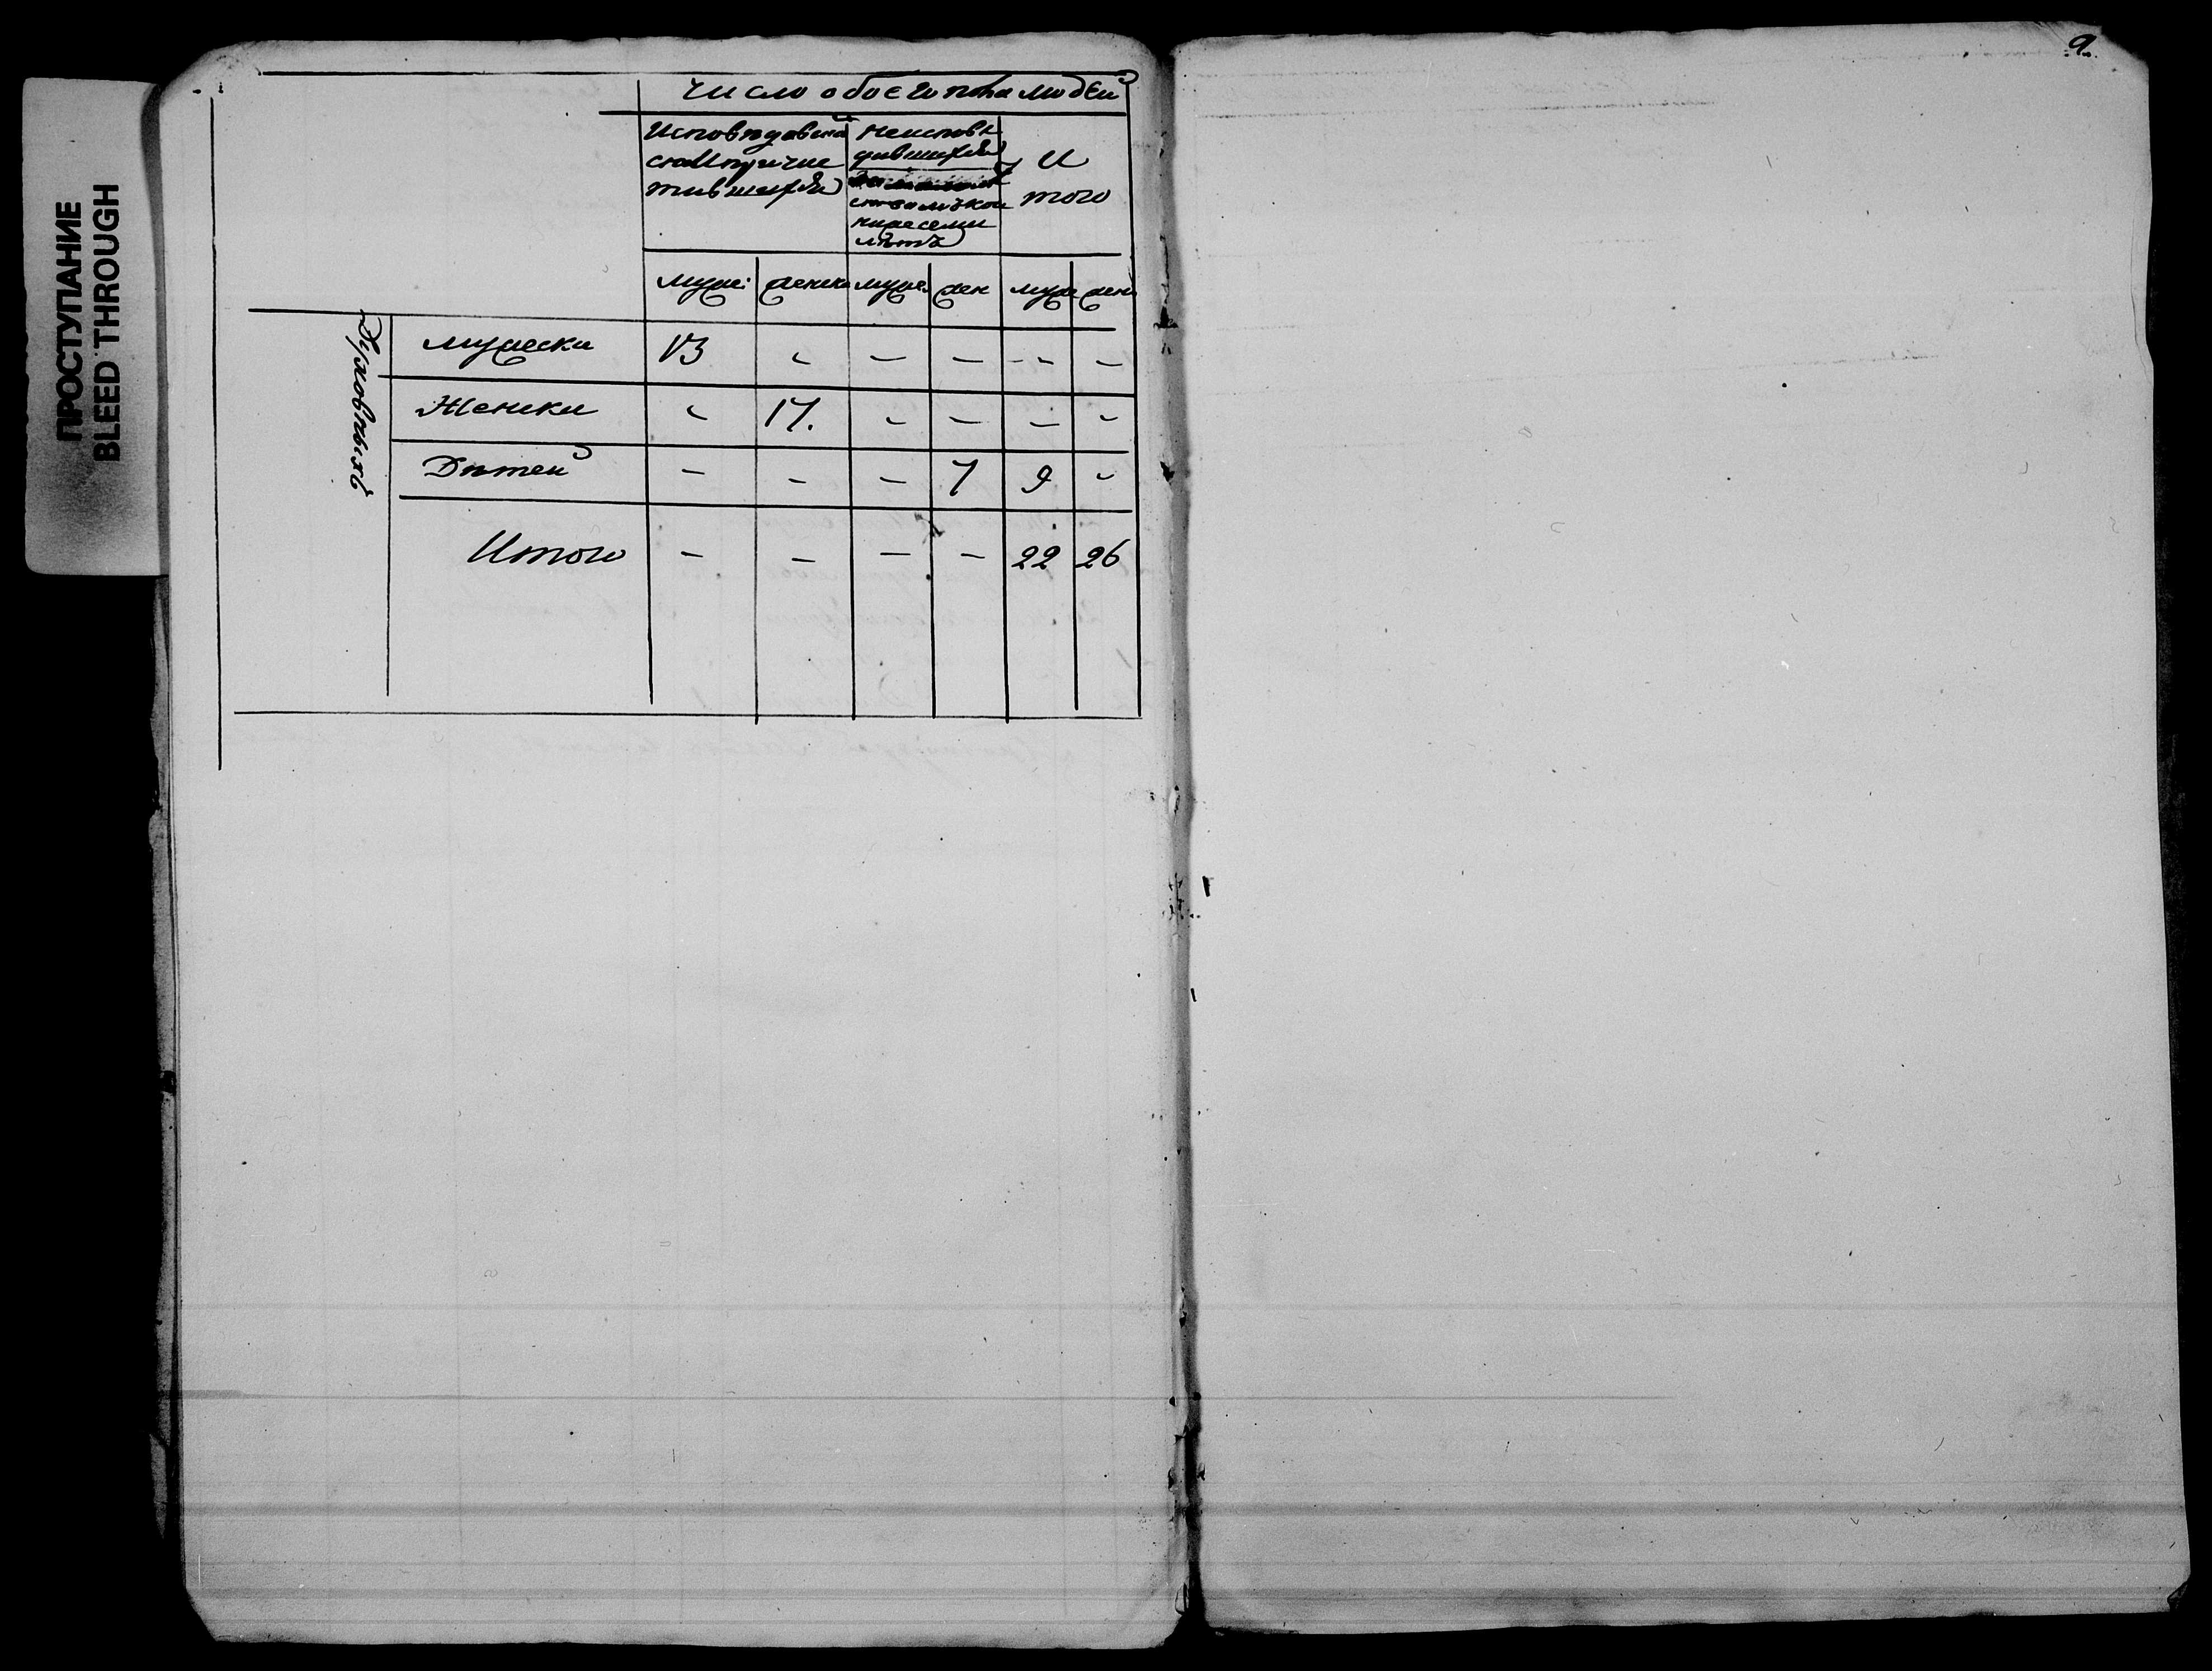 ПРОСТУПАНИЕ
BLEED THROUGH
9.
число обоего пола людей
Исповѣдавших
сяИпричис
тившихся
неисповѣ
дившихся
ства мѣкои
ниже семи
лѣтъ
И
того
муж: женска муже жен муж жен
Духовныхъ
мужеска 13 - - - - -
Женска - 17. - - - -
Дѣтей - - - 7 9 -
Итого - - - - 22 26